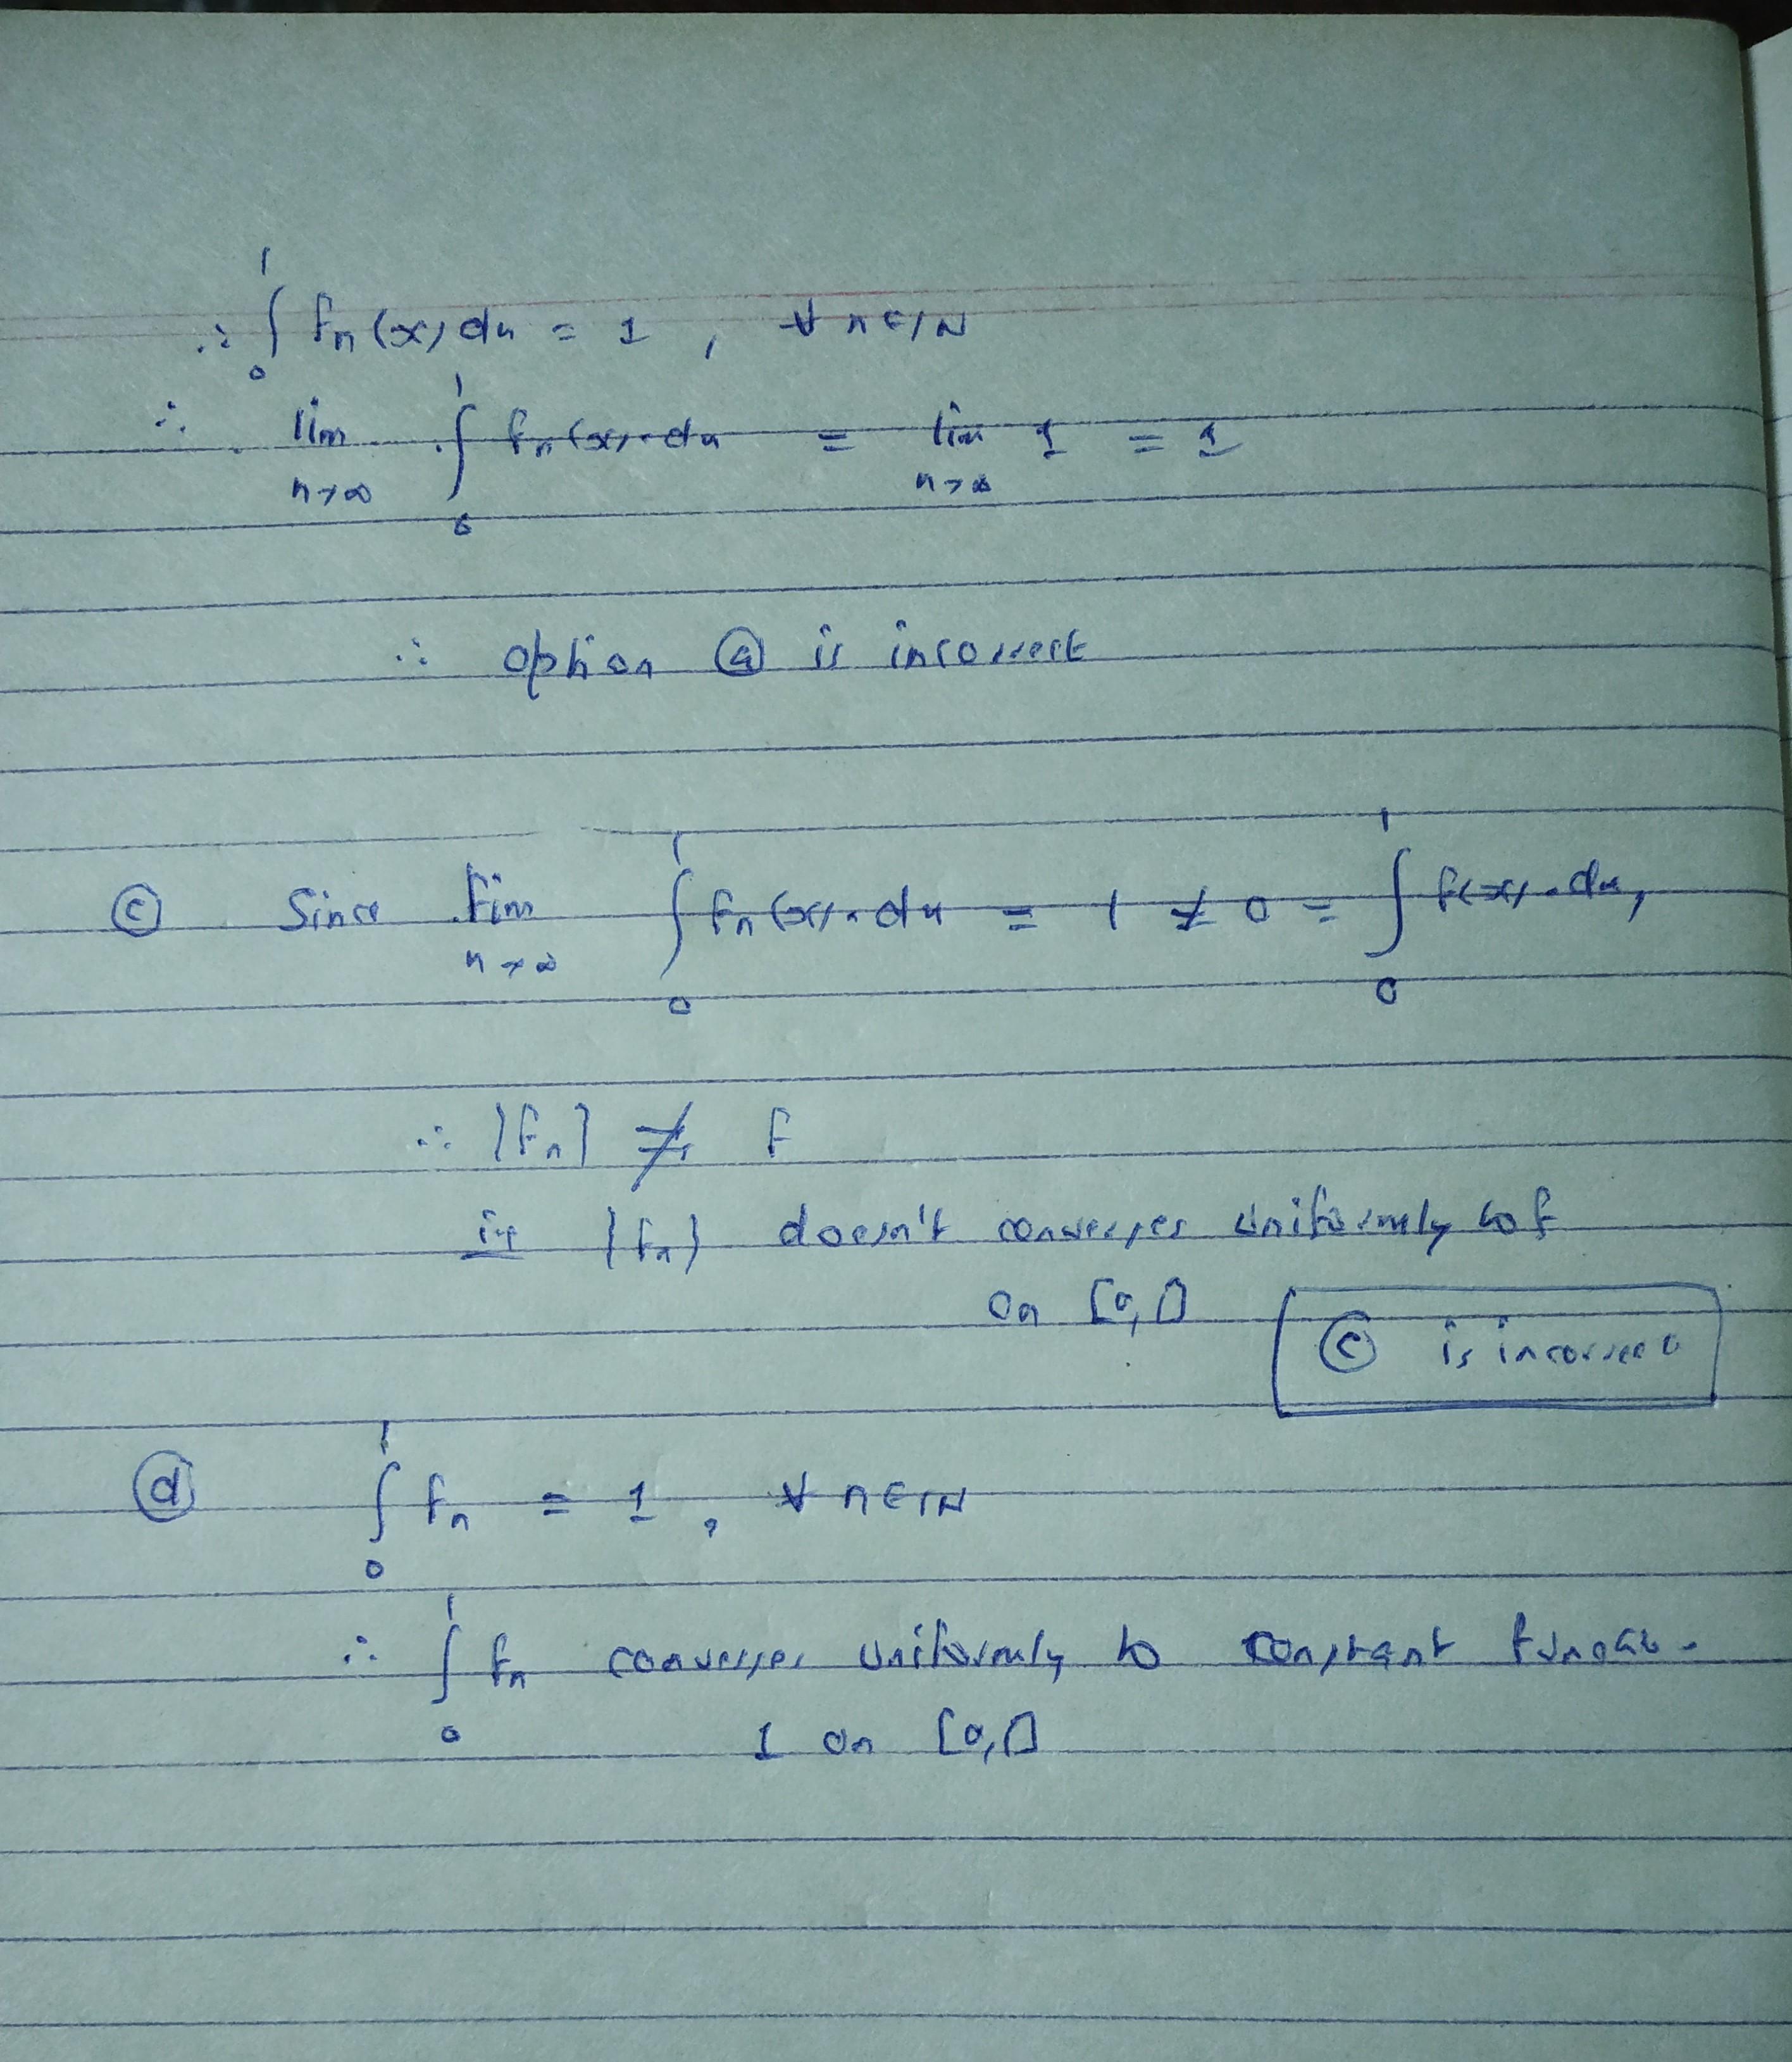 ∴ ∫₀¹ fₙ(x) dx = 1 , ∀ n ∈ ℕ
∴ lim n→∞ ∫₀¹ fₙ(x)·dx = lim n→∞ 1 = 1
∴ option ⓐ is incorrect
ⓒ Since lim n→∞ ∫₀¹ fₙ(x)·dx = 1 ≠ 0 = ∫₀¹ f(x)·dx,
∴ {fₙ} ⇉̸ f
ie {fₙ} doesn't converges uniformly to f
on [0,1]
ⓒ is incorrect
ⓓ ∫₀¹ fₙ = 1 , ∀ n ∈ ℕ
∴ ∫₀¹ fₙ converges uniformly to constant
1 on [0,1]